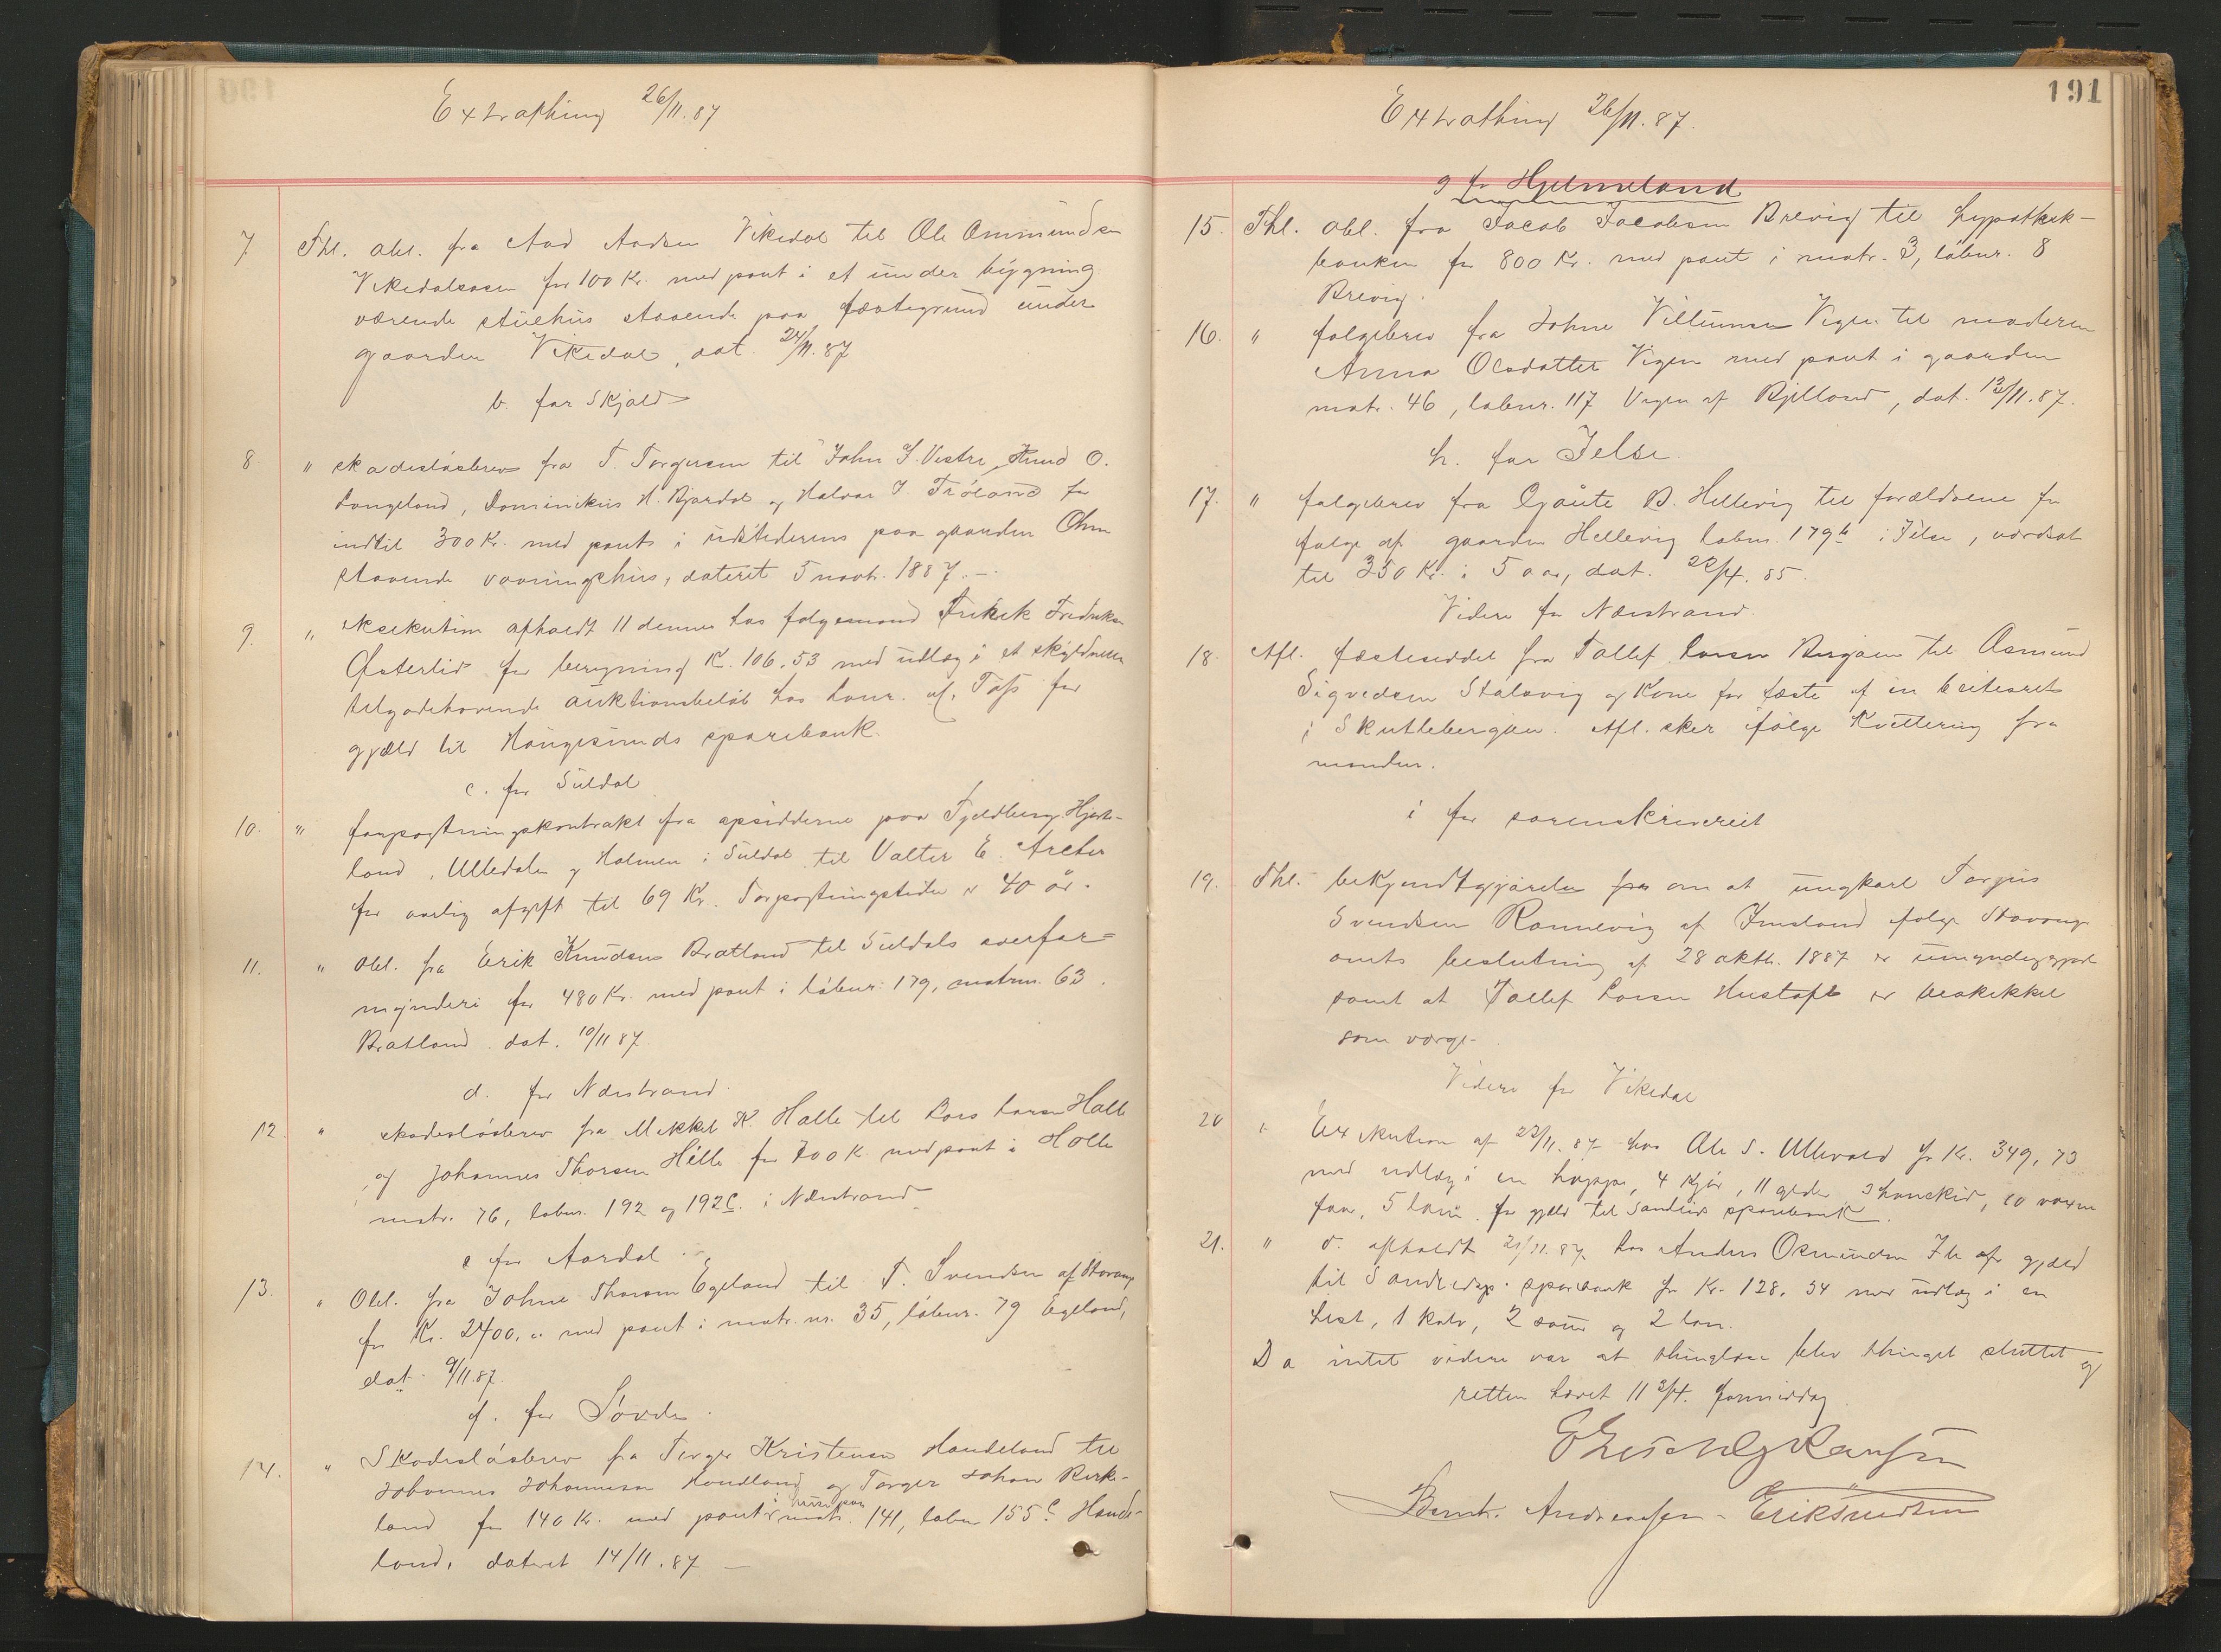 Extrathing 26/11.87
7 Thl. obl. fra Aad Aadsen Vikedal til Ole Ommundsen
Vikedalsosen for 100 Kr. med pant i et under bygning
værende stuehus staaende paa fæstegrund under
gaarden Vikedal, dat. 24/11.87
b. for Skjold
8. " skadesløsbrev fra T. Torgersen til John J. Vestre, Knud O.
Langeland, Dominikus H. Bjordal og Halvor J. Frøland for
indtil 300 Kr. med pant i udstederens paa gaarden Ohm
staaende vaaningshus, dateret 5 novbr. 1887. —
9. " eksekution afholdt 11 dennes hos følgemand Fredrik Fredriksen
Østerlid for beregning K. 106.53 med udlæg i et skyldnere
tilgodehavende auktionsbeløb hos lensm. Tofs for
gjæld til Haugesunds sparebank.
c. for Suldal
10. " forpagtningskontrakt fra opsidderne paa Fjeldberg, Hjorte-
land, Ulledalen og Holmen i Suldal til Valter E. Archer
for aarlig afgift til 69 Kr. Forpagtningstiden er 40 år.
11. " Obl. fra Erik Knudsen Bratland til Suldals overfor=
mynderi for 480 Kr. med pant i løbnr. 179, matrnr. 63.
Bratland. dat. 10/11 87
d. for Nærstrand.
12. " skadesløsbrev fra Mikkel K. Halle til Lars Larsen Halle
og Johannes Thorsen Hålle for 700 K. med pant i Halle
matr. 76, løbnr. 192 og 192c. i Nærstrand
e for Aardal
13. " Obl. fra Johne Thorsen Egeland til T. Svendsen af Stavanger
for Kr. 2400, " med pant i matr. nr. 35, løbnr. 79 Egeland,
dat. 9/11.87.
f. for Sovde.
14. " Skadesløsbrev fra Torger Kristensen Handeland til
Johannes Johannesen Handeland og Torger Johans Birke-
land for 140 Kr. med pant i huse paa matr. 141, løbnr 155c. Hande-
land, dateret 14/11.87 —
191
Extrathing 26/11.87.
g for Hjelmeland
15. Thl. obl. fra Jacob Jacobsen Brevig til hypothek-
banken for 800 Kr. med pant i matr. 3, løbnr. 8
Brevig.
16. " følgebrev fra Johne Villumsen Vigen til moderen
Anna Olsdatter Vigen med pant i gaarden
matr. 46, løbnr. 117 Vigen af Bjelland, dat. 12/11.87.
h. for Jelse.
17. " følgebrev fra Gjaute B. Hellevig til forældrene for
følge af gaarden Hellevig løbnr. 179b i Jelse, værdsat
til 350 Kr. i 5 aar, dat. 22/4.85.
Videre for Nærstrand.
18. Afl. fæsteseddel fra Tollef Larsen Bergaen til Asmund
Sigvedsen Stølsvig og Kone for fæste af en
i Skutlebergaen. Afl. sker ifølge Kvittering fra
manden.
i for sorenskriveriet
19. Thl. bekjendtgjørelse fra om at ungkarl Torjus
Svendsen Ramnevig af Imsland ifølge Stavanger
amts beslutning af 28 oktb. 1887 er umyndiggjort
samt at Tollef Larsen Hustoft er beskikket
som værge.
Videre for Vikedal
20 " Exekution af 22/11.87 hos Ole S. Ullevold for Kr. 349,73
med udlæg i en hoppe, 4 kjør, 11 gjeder, 3 hanekid, 20 voxne
faar, 5 lam. for gjæld til Sandeids sparebank.
21. " d. afholdt 21/11.87 hos Anders Osmundsen for gjæld
til Sandeids sparebank for Kr. 128.54 med udlæg i en
hest, 1 kalv, 2 sauer og 2 lam.
Da intet videre var at thinglæse blev thinget sluttet og
retten hævet 11 3/4. formiddag
Bernt. Andreassen - Erik Knudsen